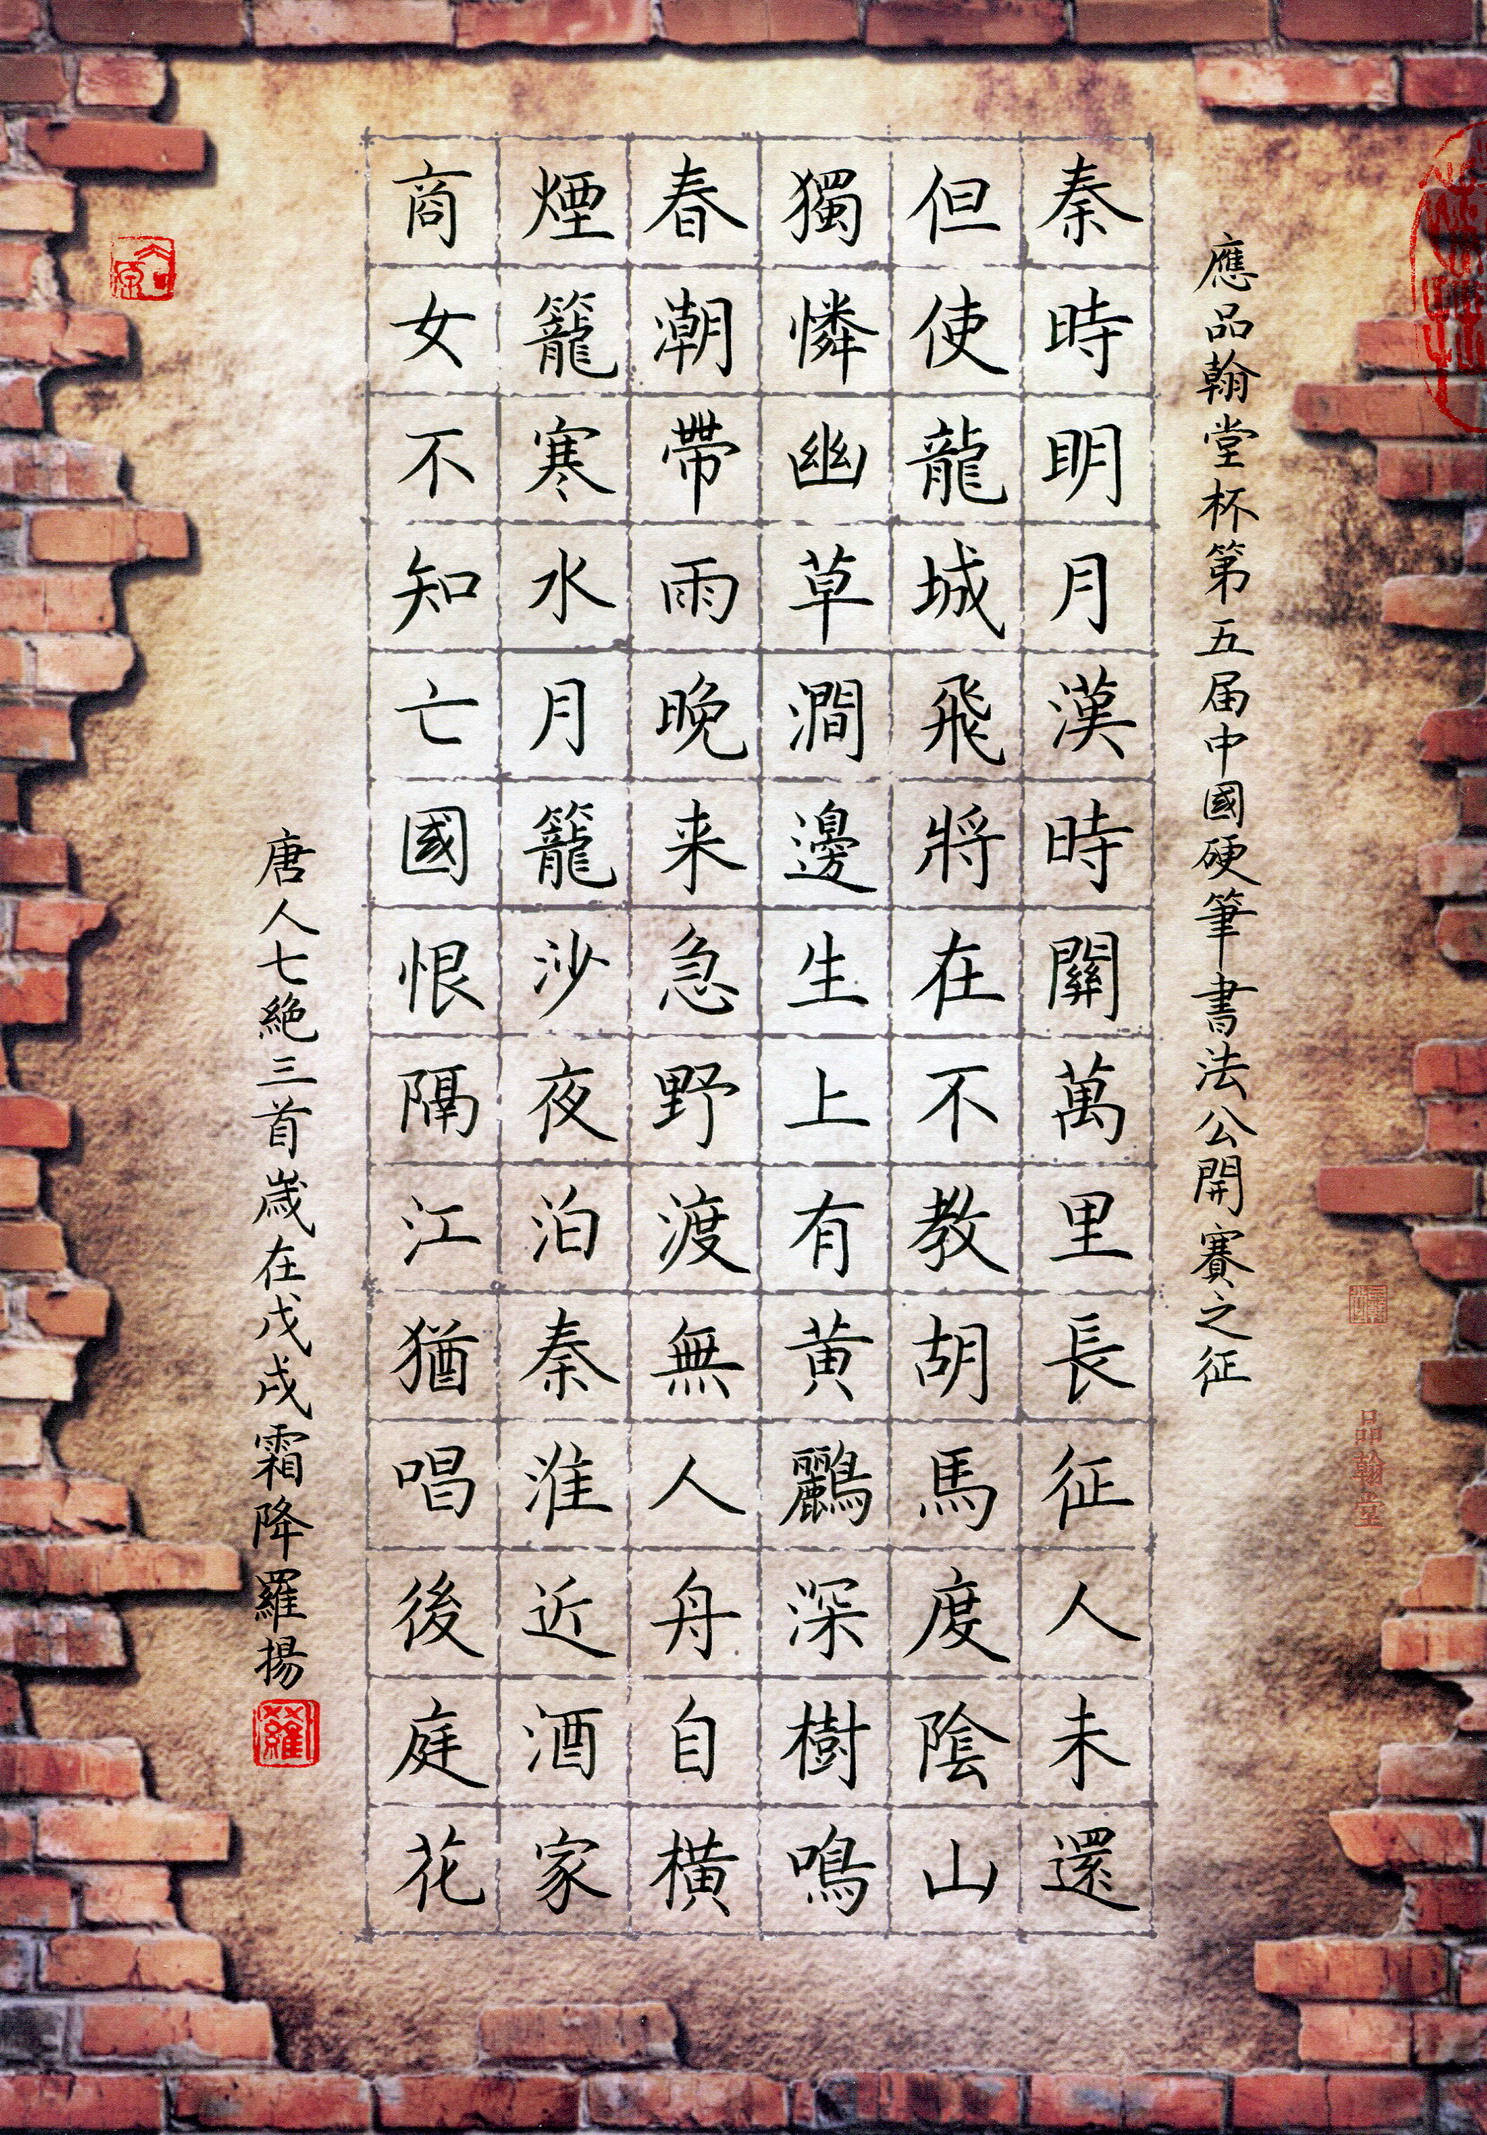 應品翰堂杯第五届中國硬筆書法公開賽之征
秦時明月漢時關萬里長征人未還
但使龍城飛將在不教胡馬度陰山
獨憐幽草澗邊生上有黄鸝深樹鳴
春潮帶雨晚来急野渡無人舟自横
煙籠寒水月籠沙夜泊秦淮近酒家
商女不知亡國恨隔江猶唱後庭花
唐人七絶三首歲在戊戌霜降羅揚
羅
品翰堂